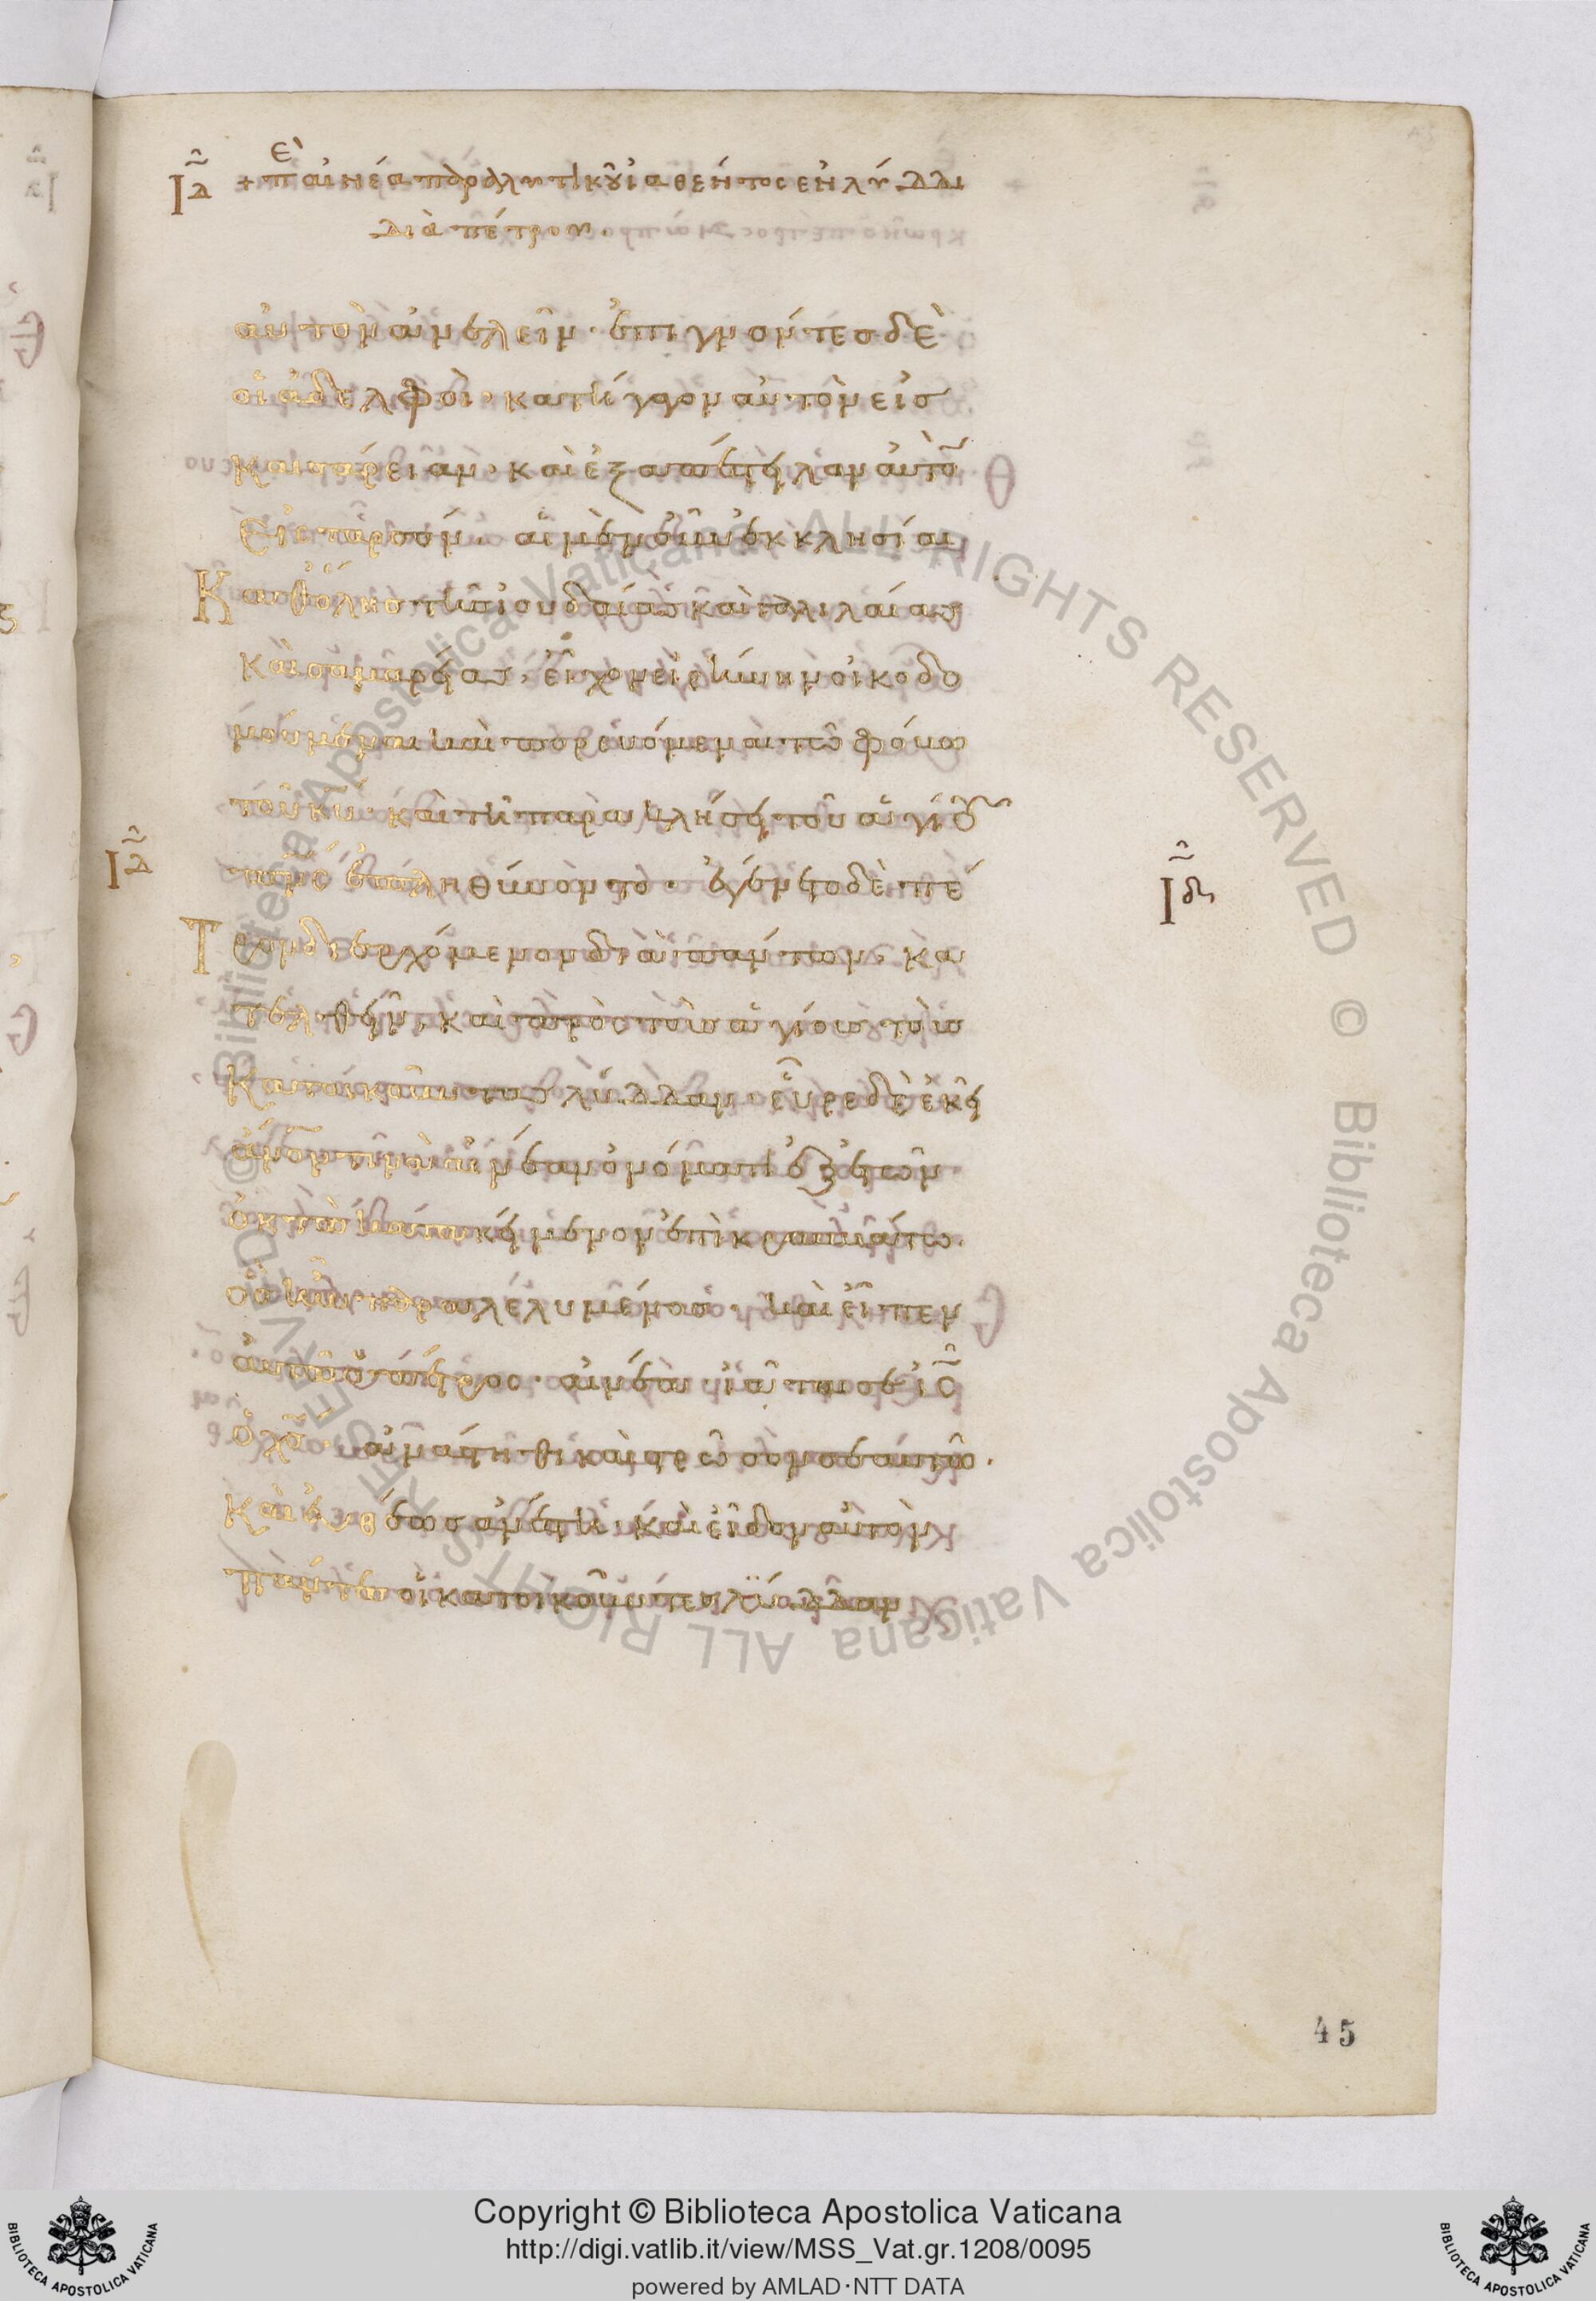 ΙΔ + πε αἰνέα παραλυτικοῦ ἰαθέντος ἐν λύδδι
διὰ πέτρου.
αὐτὸν ἀνελεῖν· ἐπιγνόντες δὲ
οἱ ἀδελφοὶ· κατήγαγον αὐτὸν εἰσ
και
εἰς ταρσόν· αἱ μὲν οὖν ἐκκλησίαι
Καθ' ὅλησ τῆσ ἰουδαίασ καὶ γαλιλαίασ
καὶ σαμαρείασ, εἶχον εἰρήνην οἰκοδο
μούμεναι καὶ πορευόμεναι τῶ φόβω
τοῦ κυ· καὶ τῆ παρακλήσει τοῦ ἁγίου
ΙΔ πνσ ἐπληθύνοντο· ἐγένετο δὲ πέ ΙΔ
Τρον διερχόμενον διὰ πάντων, κα
τελθεῖν, καὶ πρὸς τοὺσ ἁγίουσ τοὺσ
Κατοικοῦντασ λύδδαν· εὗρε δὲ ἐκεῖ
ἄνον τινὰ αἰνέαν ὀνόματι ἐξ ἐτῶν
ὀκτὼ κατακείμενον ἐπὶ κραββάτω.
ὃσ ἦν παραλελυμένοσ· καὶ εἶπεν
αὐτῶ ὁ πέτρος· αἰνέα ἰᾶταί σε ισ
ὁ χσ· ἀνάστηθι καὶ στρῶσον σεαυτῶ.
Καὶ εὐθέωσ ἀνέστη· καὶ εἶδον αὐτὸν
Πάντεσ οἱ κατοικοῦντεσ λύδδαν
45
Copyright © Biblioteca Apostolica Vaticana
http://digi.vatlib.it/view/MSS_Vat.gr.1208/0095
powered by AMLAD·NTT DATA
BIBLIOTECA APOSTOLICA VATICANA
BIBLIOTECA APOSTOLICA VATICANA
© Biblioteca Apostolica Vaticana ALL RIGHTS RESERVED © Biblioteca Apostolica Vaticana ALL RIGHTS RESERVED